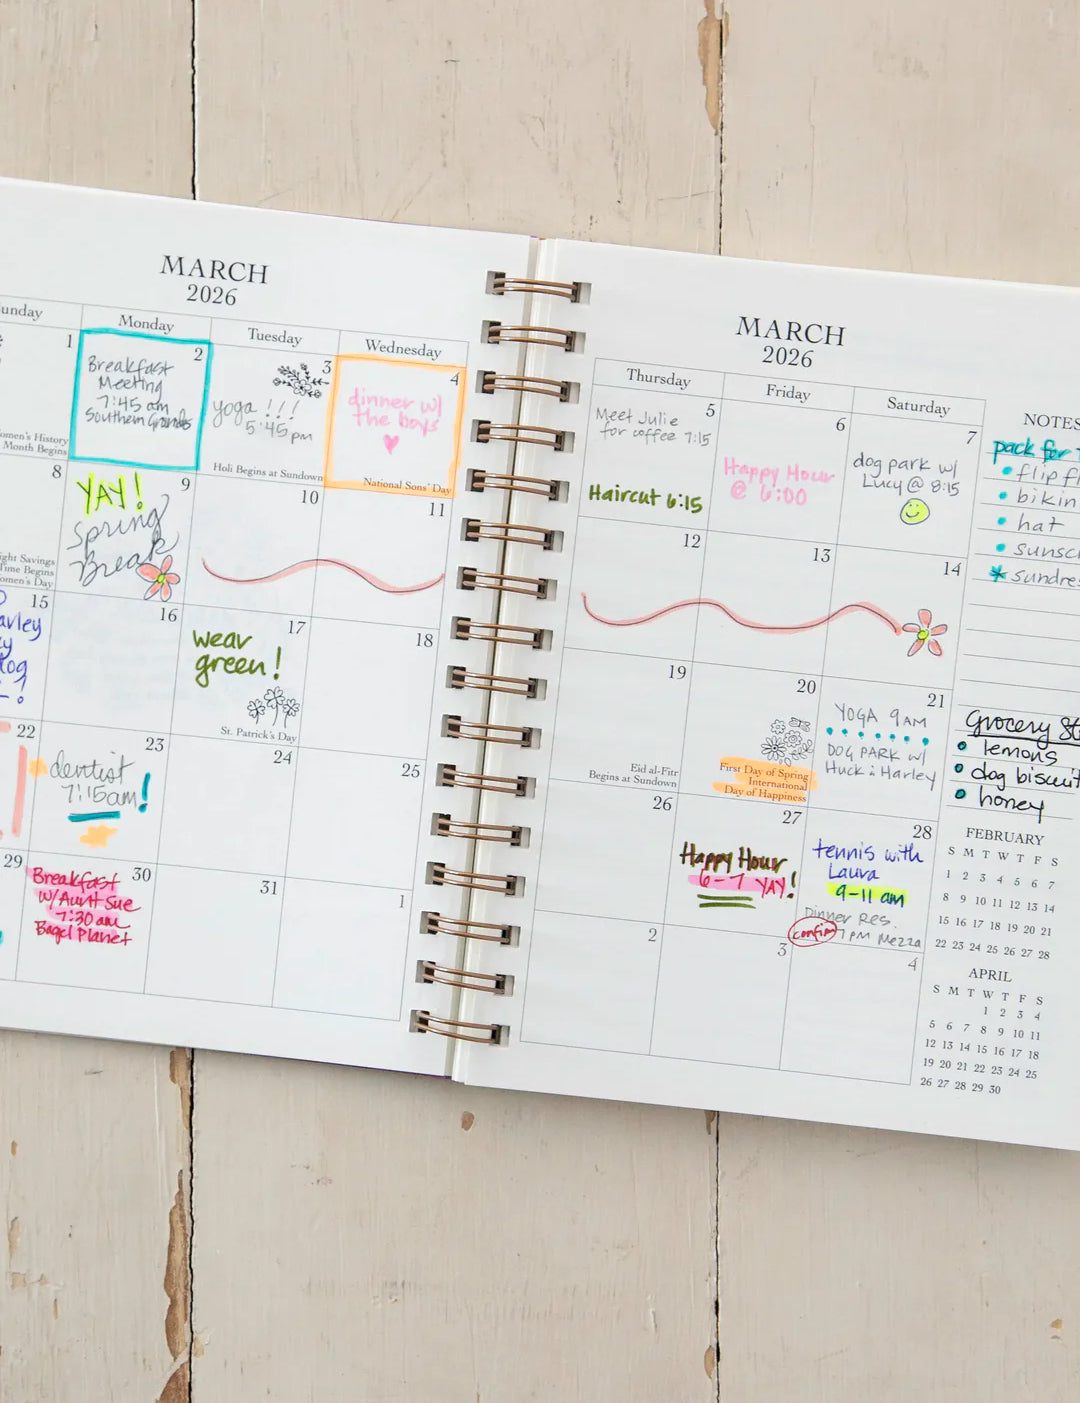 MARCH
2026
unday
Monday
Tuesday
Wednesday
1
omen's History
Month Begins
2
Breakfast
Meeting
7:45 am
Southern Grounds
3
yoga !!!
5:45 pm
Holi Begins at Sundown
4
dinner w/
the boys
National Sons' Day
8
ight Savings
Time Begins
omen's Day
9
YAY!
Spring
Break
10
11
15
arley
16
17
wear
green!
St. Patrick's Day
18
22
23
dentist
7:15am!
24
25
29
30
Breakfast
w/Aunt Sue
7:30 am
Bagel Planet
31
1
MARCH
2026
Thursday
Friday
Saturday
5
Meet Julie
for coffee 7:15
Haircut 6:15
6
Happy Hour
@ 6:00
7
dog park w/
Lucy @ 8:15
12
13
14
19
Eid al-Fitr
Begins at Sundown
20
First Day of Spring
International
Day of Happiness
21
YOGA 9AM
DOG PARK w/
Huck & Harley
26
27
Happy Hour
6-7 YAY!
28
tennis with
Laura
9-11 am
Dinner Res.
confirm 7PM Mezza
2
3
4
NOTES
pack for
flip fl
bikin
hat
sunsc
sundre
Grocery St
lemons
dog biscuit
honey
FEBRUARY
S M T W T F S
1 2 3 4 5 6 7
8 9 10 11 12 13 14
15 16 17 18 19 20 21
22 23 24 25 26 27 28
APRIL
S M T W T F S
1 2 3 4
5 6 7 8 9 10 11
12 13 14 15 16 17 18
19 20 21 22 23 24 25
26 27 28 29 30